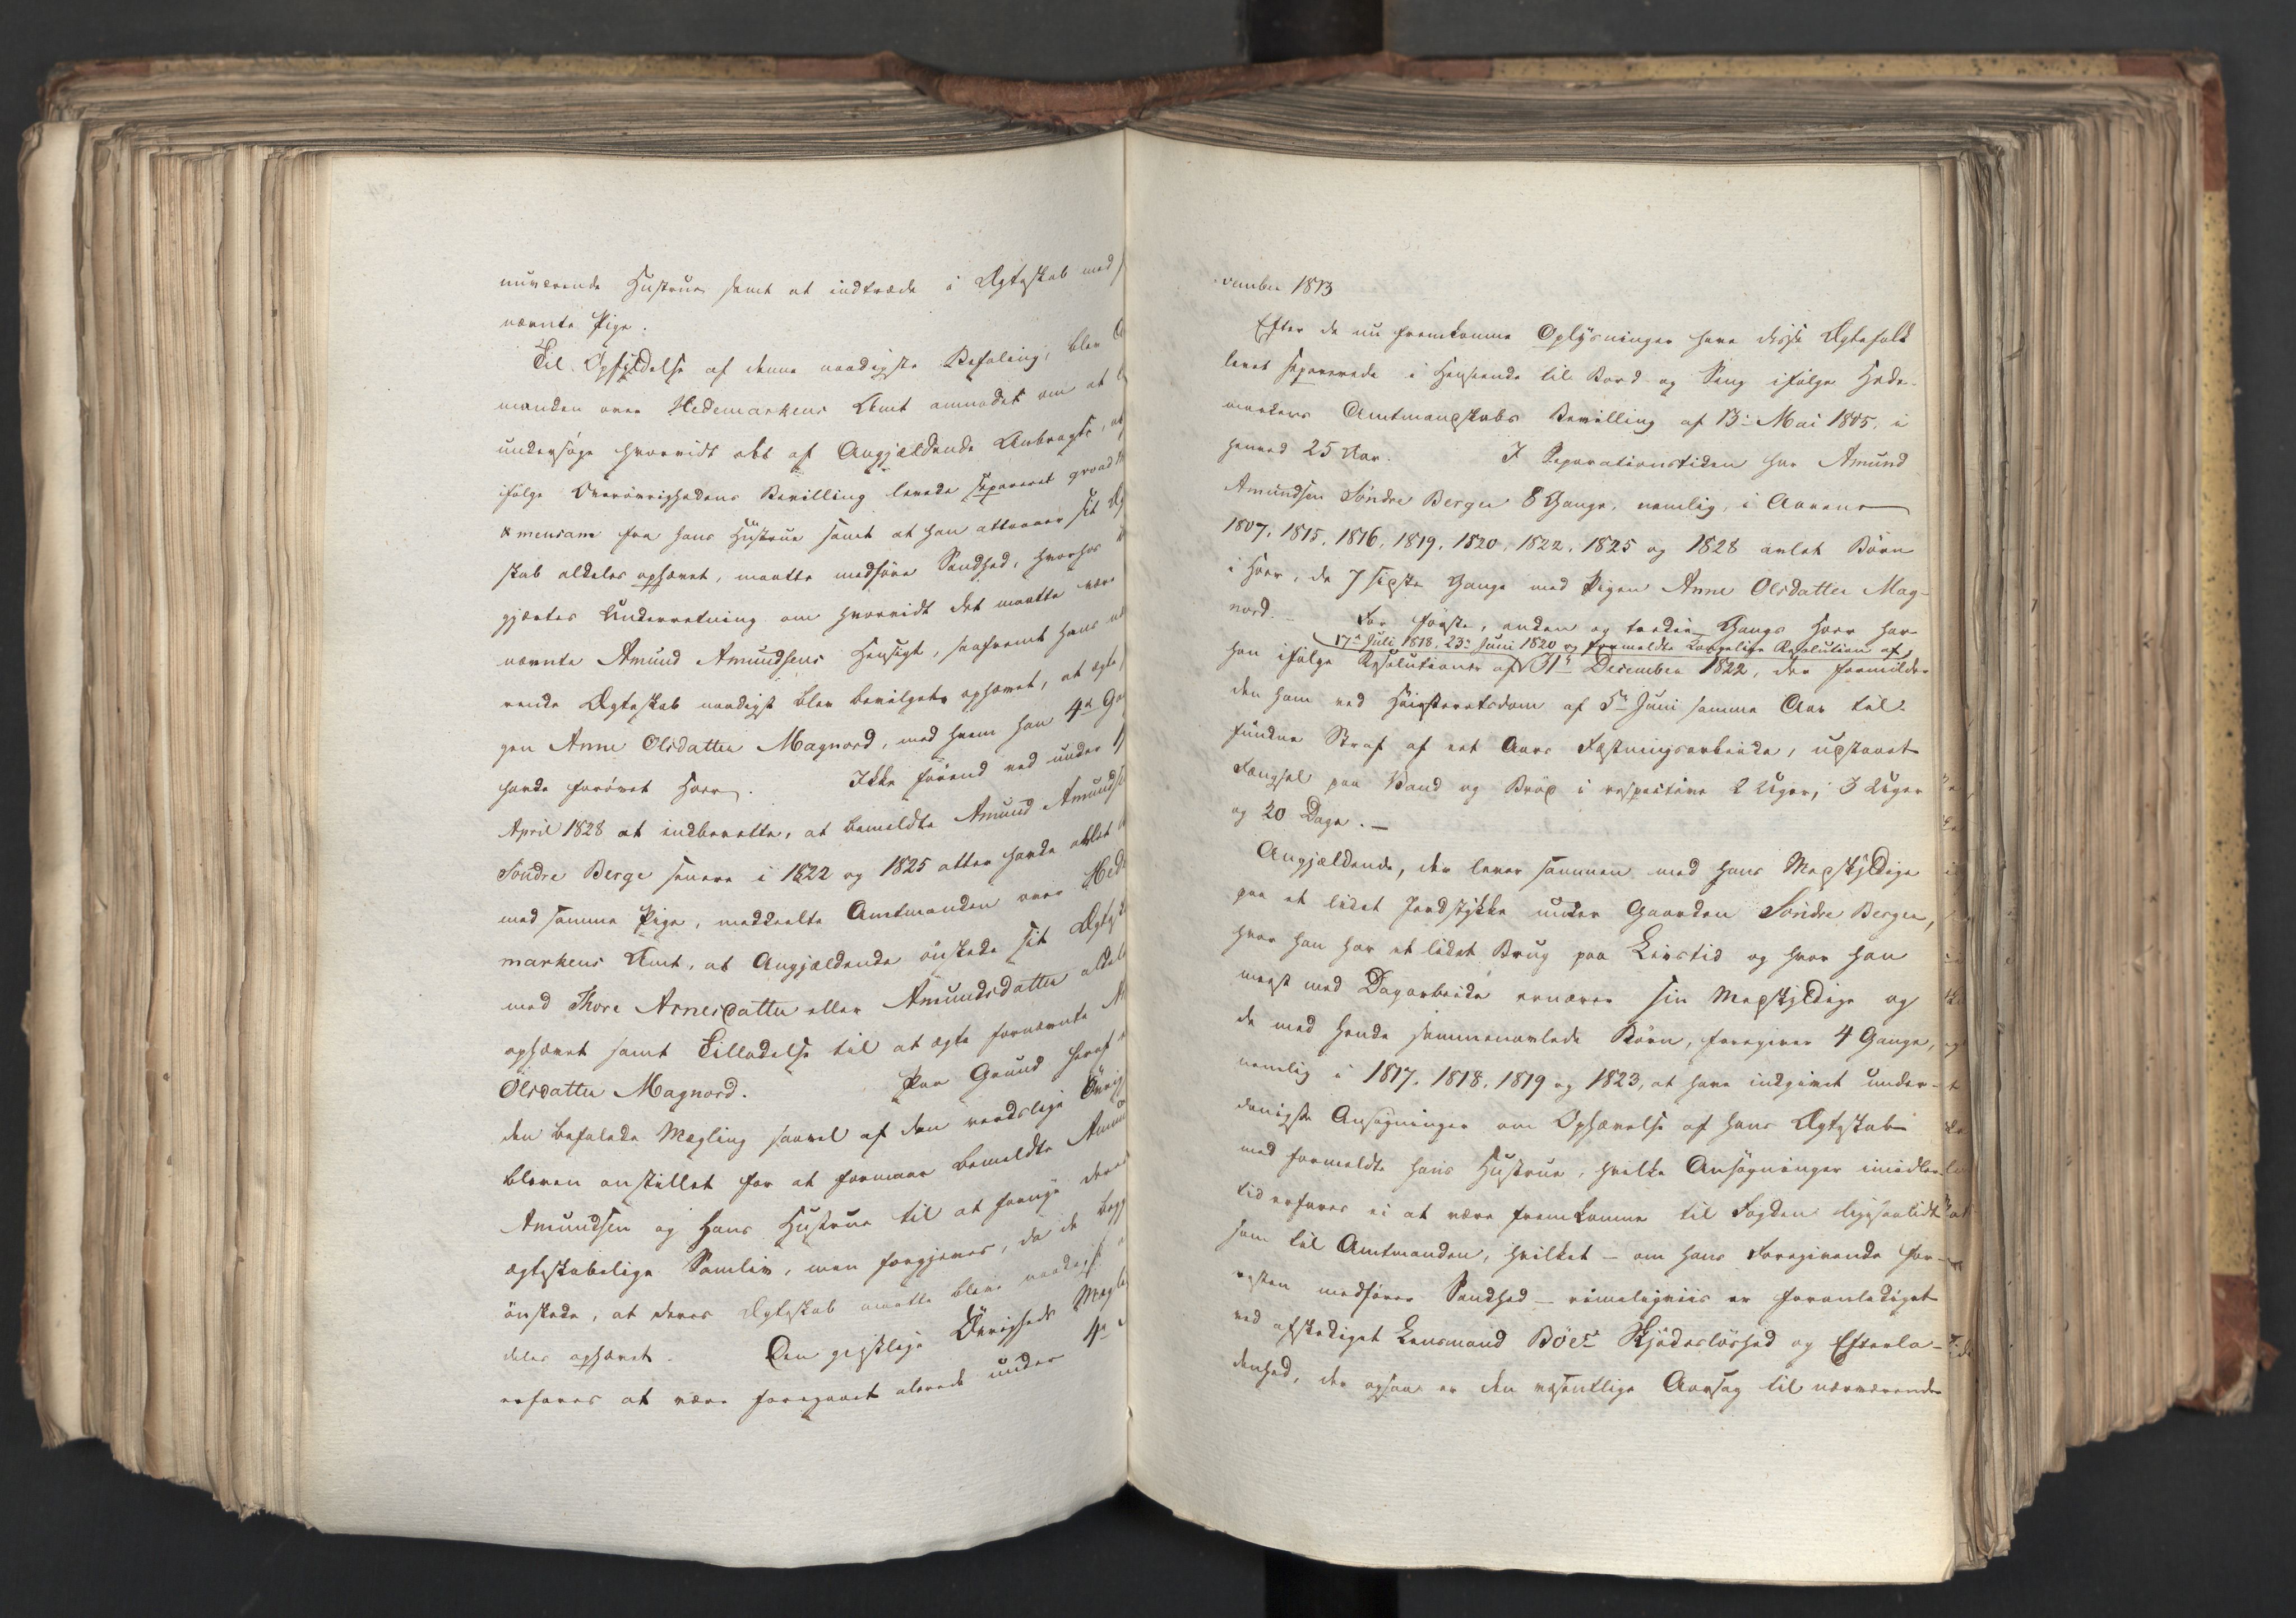 nuværende Hustrue samt at indtræde i Ægteskab med
nævnte Pige.
Til Opfyldelse af denne naadigste Befaling, blev
manden over Hedemarkens Amt anmodet om at
undersøge hvorvidt det af Angjældende Anbragte, at
ifølge Overøvrighedens Bevilling levede separeret qvoad
& mensam fra hans Hustrue samt at han attraaer sit
skab aldeles ophævet, maatte medføre Sandhed, hvorhos
gjærtes Underretning om hvorvidt det maatte være
nævnte Amund Amundsens Hensigt, saafremt hans
rende Ægteskab naadigst blev bevilget ophævet, at ægte
gen Anne Olsdatter Magnord, med hvem han 4de
havde forøvet Hoer. Ikke førend ved under
April 1828 at indberette, at bemeldte Amund Amundsen
Söndre Berge senere i 1822 og 1825 atter havde avlet
med samme Pige, meddeelte Amtmanden over Hede
markens Amt, at Angjældende önskede sit Ægtesk
med Thore Arnesdatter eller Amundsdatter aldel
ophævet samt Tilladelse til at ægte fornævnte
Olsdatter Magnord. Paa Grund heraf
den befalede Mægling saavel af den verdslige Øvrig
bleven anstillet for at formaae bemeldte Amund
Amundsen og hans Hustrue til at fornye deres
ægteskabelige Samliv, men forgjeves, da de begge
önskede, at deres Ægteskab maatte blive naadigst
deles ophævet. Den geistlige Øvrigheds Mægling
erfares at være foregaaet alerede under 4de
vember 1813
Efter de nu fremkomne Oplysninger have disse Ægtefolk
levet separerede i Henseende til Bord og Seng ifølge Hede-
markens Amtmandskabs Bevilling af 13de Mai 1805, i
henved 25 Aar. I Separationstiden har Amund
Amundsen Söndre Bergen 8 Gange, nemlig, i Aarene
1807, 1815, 1816, 1819, 1820, 1822, 1825 og 1828 avlet Børn
i Hoer, de 7 sidste Gange med Pigen Anne Olsdatter Mag-
nord. – For første, anden og tredie Gangs Hoer har
17de Juli 1818, 23de Juni 1820 og formeldte Kongelige Resolution af
han ifølge Resolutioner af 31te December 1822, der formilde-
den ham ved Høiesteretsdom af 5te Juni samme Aar til-
fundne Straf af eet Aars Fæstningsarbeide, udstaaet
Fængsel paa Vand og Brød i respective 2 Uger, 3 Uger
og 20 Dage. –
Angjældende, der lever sammen med hans Medskyldige
paa et lidet Jordstykke under Gaarden Söndre Bergen,
hvor han har et lidet Brug paa Livstid og hvor han
meest med Dagarbeide ernærer sin Medskyldige og
de med hende sammenavlede Børn, foregiver 4 Gange,
nemlig i 1817, 1818, 1819 og 1823, at have indgivet under-
danigste Ansøgninger om Ophævelse af hans Ægteskab
med formeldte hans Hustrue, hvilke Ansøgninger imidler-
tid erfares ei at være fremkomne til Fogden ligesaalidt
som til Amtmanden, hvilket – om hans Foregivende for-
resten medfører Sandhed – rimeligviis er foranlediget
ved afskediget Lensmand Böes Skjødesløshed og Efterla-
denhed, der ogsaa er den væsentlige Aarsag til nærværende